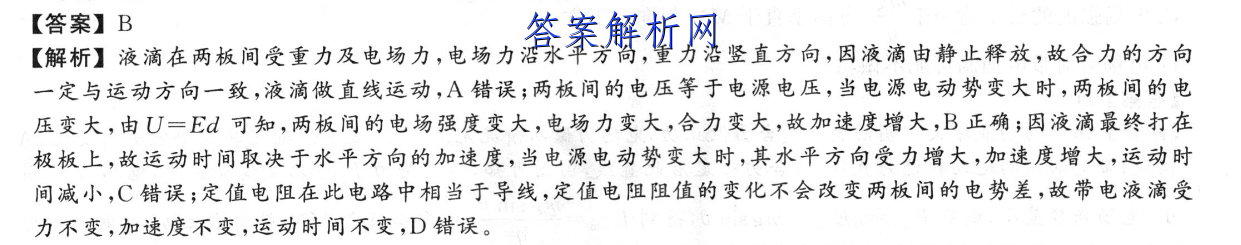 【答案】B
答案解析网
【解析】液滴在两板间受重力及电场力,电场力沿水平方向,重力沿竖直方向,因液滴由静止释放,故合力的方向
一定与运动方向一致,液滴做直线运动,A 错误;两板间的电压等于电源电压,当电源电动势变大时,两板间的电
压变大,由U=Ed 可知,两板间的电场强度变大,电场力变大,合力变大,故加速度增大,B 正确;因液滴最终打在
极板上,故运动时间取决于水平方向的加速度,当电源电动势变大时,其水平方向受力增大,加速度增大,运动时
间减小,C 错误;定值电阻在此电路中相当于导线,定值电阻阻值的变化不会改变两板间的电势差,故带电液滴受
力不变,加速度不变,运动时间不变,D 错误。